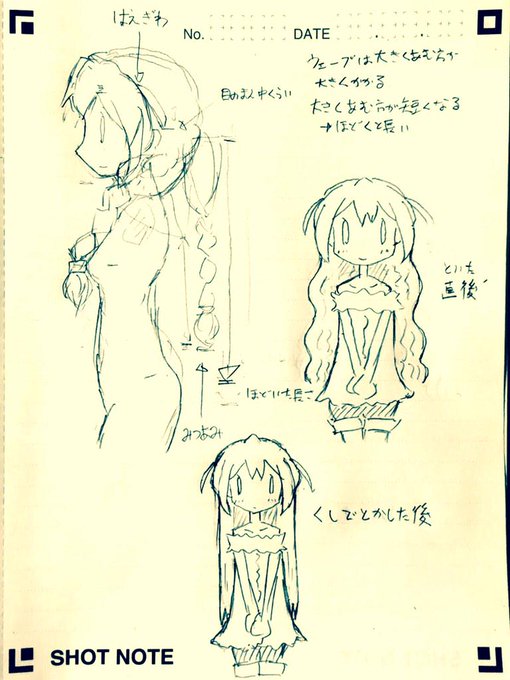 はえぎわ
No.
DATE
目のまん中くらい
ウェーブは大きくあむ方が
大きくかかる
大きくあむ方が短くなる
→ほどくと長い
といた
直後
ほどいた長さ
みつあみ
くしでとかした後
SHOT NOTE